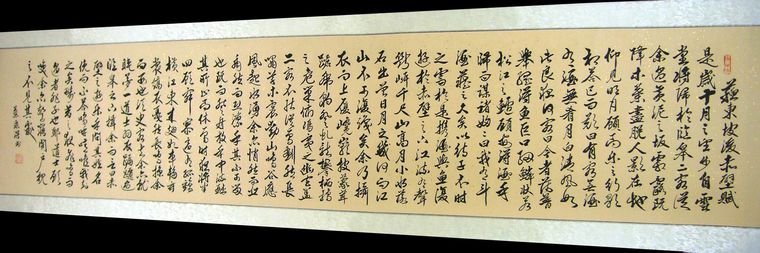 蘇東坡後赤壁賦
是歲十月之望步自雪
堂將歸於臨皋二客從
余過黃泥之坂霜露既
降木葉盡脫人影在地
仰見明月顧而樂之行歌
相答已而歎曰有客無酒
有酒無肴月白清風如
此良夜何客曰今者薄暮
舉網得魚巨口細鱗狀若
松江之鱸顧安所得酒乎
歸而謀諸婦婦曰我有斗
酒藏之久矣以待子不時
之需於是攜酒與魚復
遊於赤壁之下江流有聲
斷岸千尺山高月小水落
石出曾日月之幾何而江
山不可復識矣余乃攝
衣而上履巉巖披蒙茸
踞虎豹登虬龍攀栖鶻
之危巢俯馮夷之幽宮蓋
二客不能從焉劃然長
嘯草木震動山鳴谷應
風起水湧余亦悄然而悲
肅然而恐凜乎其不可留
也反而登舟放乎中流聽
其所止而休焉時夜將半
四顧寂寥適有孤鶴
橫江東來翅如車輪玄
裳縞衣戛然長鳴掠余
舟而西也須臾客去余亦就
睡夢一道士羽衣蹁躚過
臨皋之下揖余而言曰赤
壁之遊樂乎問其姓名
俛而不答嗚呼噫嘻我知
之矣疇昔之夜飛鳴而
過我者非子也耶道士顧
笑余亦驚悟開戶視
之不見其處